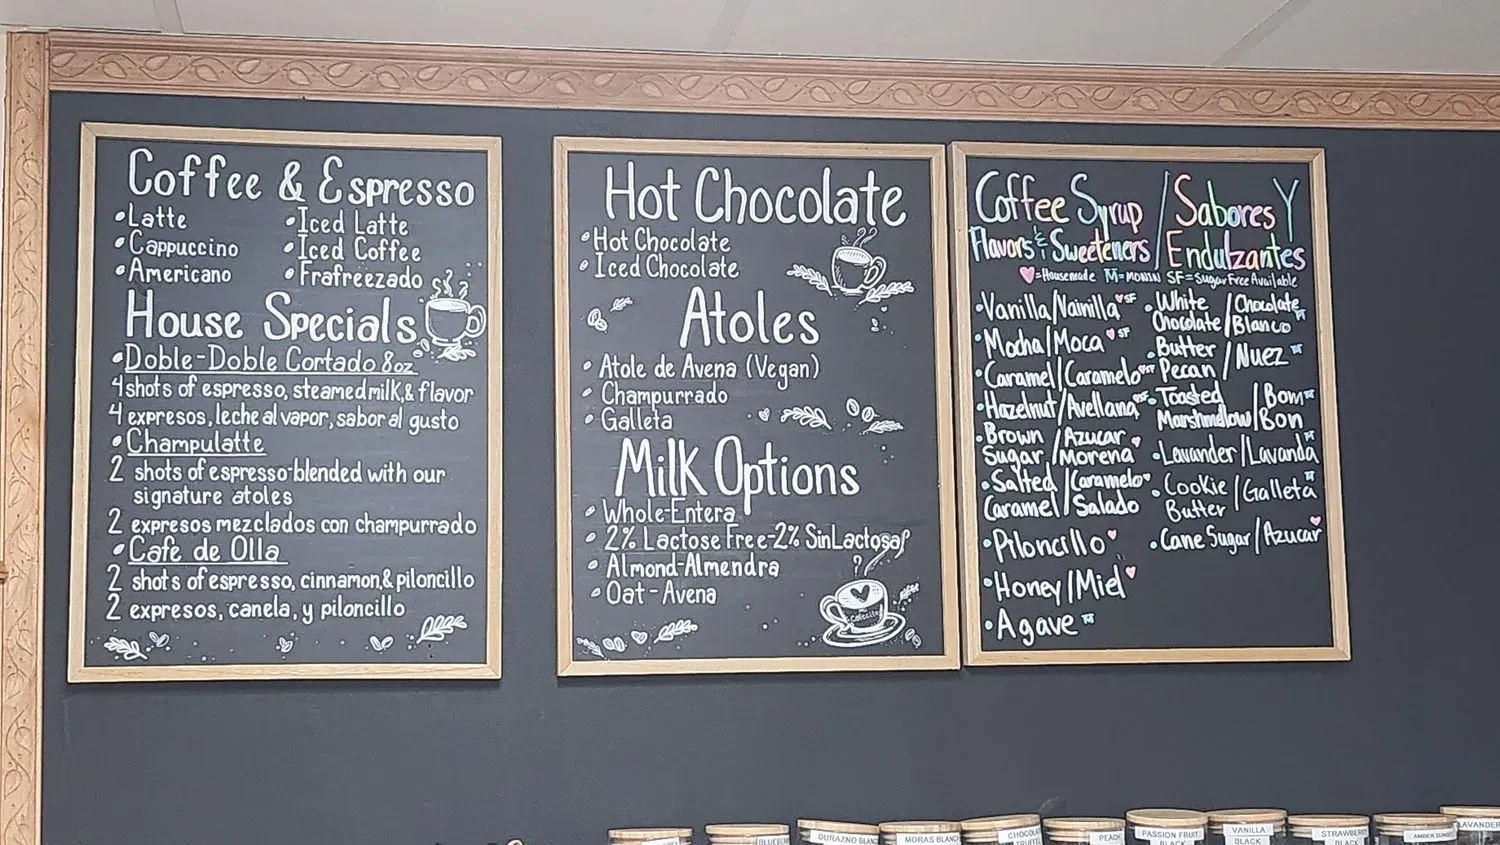 Coffee & Espresso
•Latte
•Cappuccino
•Americano
•Iced Latte
•Iced Coffee
•Frafreezado
House Specials
•Doble-Doble Cortado 8oz
4 shots of espresso, steamed milk, & flavor
4 expresos, leche al vapor, sabor al gusto
•Champulatte
2 shots of espresso blended with our
signature atoles
2 expresos mezclados con champurrado
•Cafe de Olla
2 shots of espresso, cinnamon, & piloncillo
2 expresos, canela, y piloncillo
Hot Chocolate
•Hot Chocolate
•Iced Chocolate
Atoles
•Atole de Avena (Vegan)
•Champurrado
•Galleta
Milk Options
•Whole-Entera
•2% Lactose Free-2% Sin Lactosa
•Almond-Almendra
•Oat-Avena
Cafecito
Coffee Syrup / Sabores Y
Flavors & Sweeteners / Endulzantes
♥=Housemade M=MONIN SF=Sugar Free Available
•Vanilla/Vainilla ♥ SF
•Mocha/Moca ♥ SF
•Caramel/Caramelo ♥ SF
•Hazelnut/Avellana ♥ SF
•Brown / Azucar
Sugar / Morena ♥
•Salted / Caramelo ♥
Caramel / Salado
•Piloncillo ♥
•Honey/Miel ♥
•Agave M
•White / Chocolate
Chocolate / Blanco M
•Butter
Pecan / Nuez M
•Toasted / Bom M
Marshmellow / Bon
•Lavander / Lavanda M
•Cookie / Galleta M
Butter
•Cane Sugar / Azucar ♥
BLUEBER
DURAZNO BLANC
MORAS BLANC
CHOCOLA
TRUFFL
PEACH
PASSION FRUIT
BLACK
VANILLA
BLACK
STRAWBERR
BLACK
AMBER SUNSET
LAVANDER